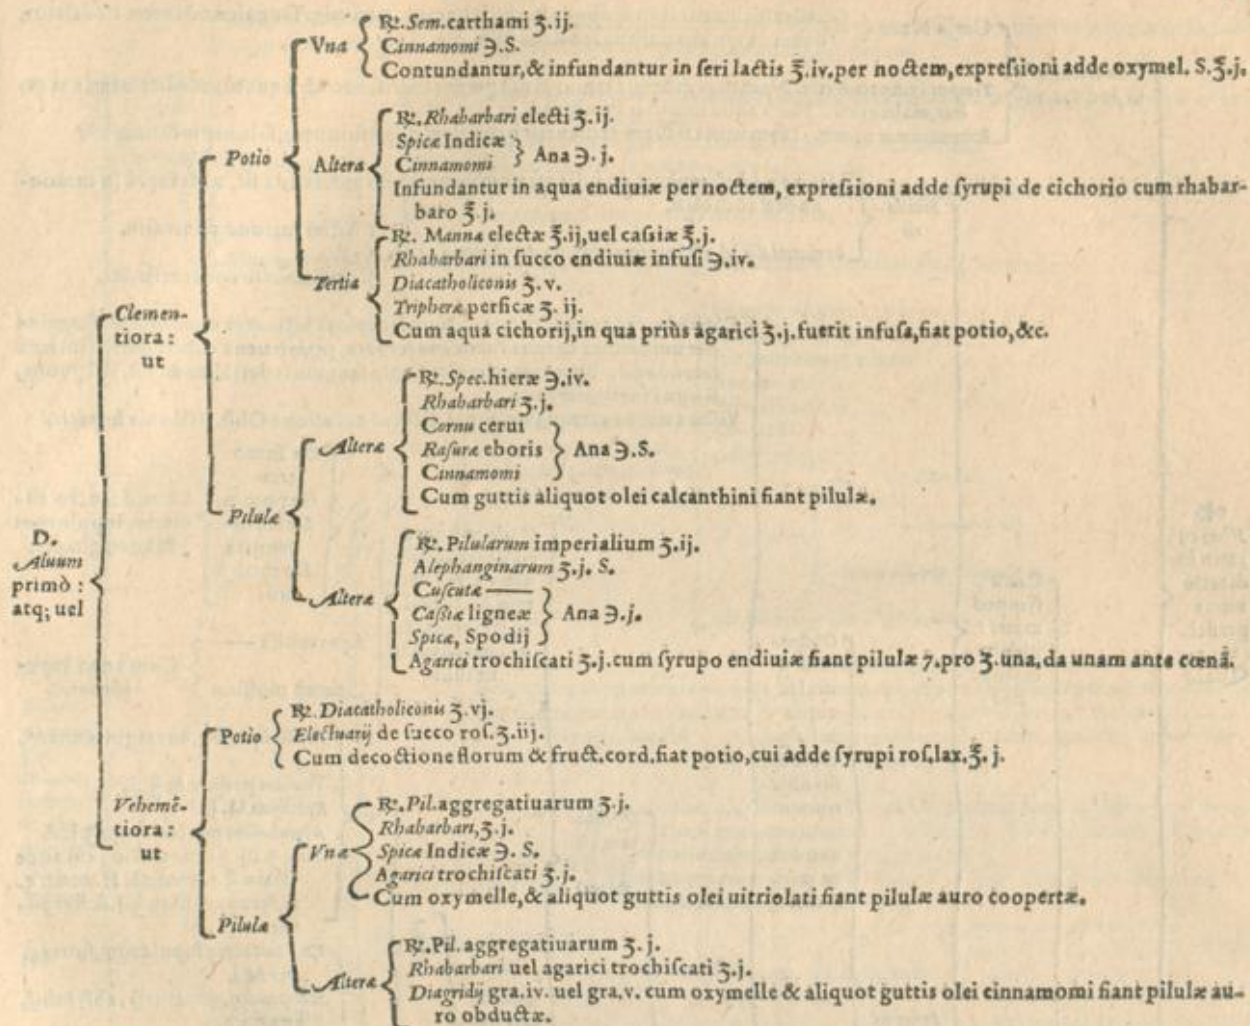 ℞. Sem. carthami ʒ. ij.
Vna Cinnamomi ℈. S.
Contundantur, & infundantur in seri lactis ℥. iv. per noctem, expressioni adde oxymel. S. ℥. j.
℞. Rhabarbari electi ʒ. ij.
Spicæ Indicæ
Potio Altera Cinnamomi Ana ℈. j.
Infundantur in aqua endiuiæ per noctem, expressioni adde syrupi de cichorio cum rhabar-
baro ℥. j.
℞. Manna electæ ℥. ij, uel cassiæ ℥. j.
Rhabarbari in succo endiuiæ infusi ℈. iv.
Tertia Diacatholiconis ʒ. v.
Tripheræ persicæ ʒ. ij.
Clemen-
tiora: Cum aqua cichorij, in qua priùs agarici ʒ. j. fuerit infusa, fiat potio, &c.
ut
℞. Spec. hieræ ℈. iv.
Rhabarbari ʒ. j.
Cornu cerui
Alteræ Rasuræ eboris Ana ℈. S.
Cinnamomi
Cum guttis aliquot olei calcanthini fiant pilulæ.
Pilulæ
D.
℞. Pilularum imperialium ʒ. ij.
Aluum Alephanginarum ʒ. j. S.
primò: Cuscutæ
atq; uel Alteræ Cassiæ ligneæ Ana ℈. j.
Spicæ, Spodij
Agarici trochiscati ʒ. j. cum syrupo endiuiæ fiant pilulæ 7. pro ʒ. una, da unam ante cœnã.
℞. Diacatholiconis ʒ. vj.
Potio Electuarij de succo ros. ʒ. iij.
Cum decoctione florum & fruct. cord. fiat potio, cui adde syrupi ros. lax. ℥. j.
Vehemẽ-
tiora: ℞. Pil. aggregatiuarum ʒ. j.
ut Rhabarbari, ʒ. j.
Vnæ Spicæ Indicæ ℈. S.
Agarici trochiscati ʒ. j.
Cum oxymelle, & aliquot guttis olei uitriolati fiant pilulæ auro coopertæ.
Pilulæ
℞. Pil. aggregatiuarum ʒ. j.
Rhabarbari uel agarici trochiscati ʒ. j.
Alteræ Diagridij gra. iv. uel gra. v. cum oxymelle & aliquot guttis olei cinnamomi fiant pilulæ au-
ro obductæ.